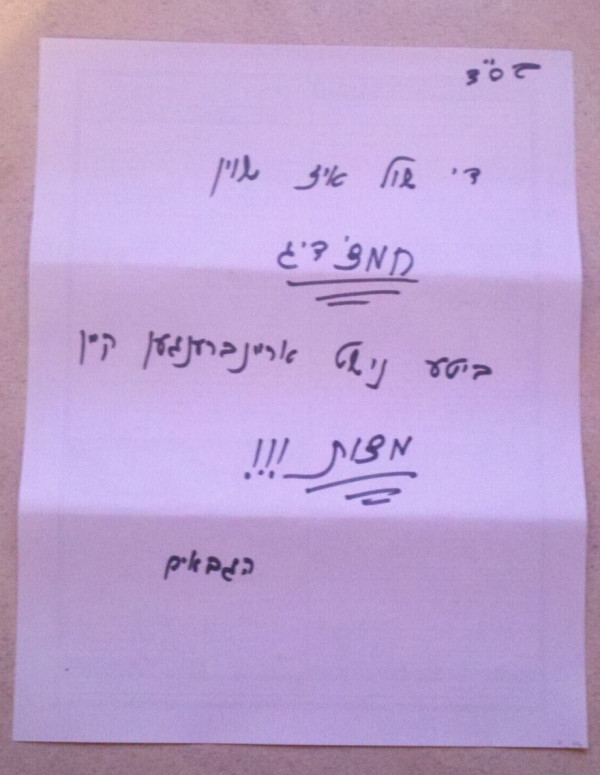 בס"ד
די שול איז שוין
חמצ'דיג
ביטע נישט אריינברענגען קיין
מצות !!!
הגבאים